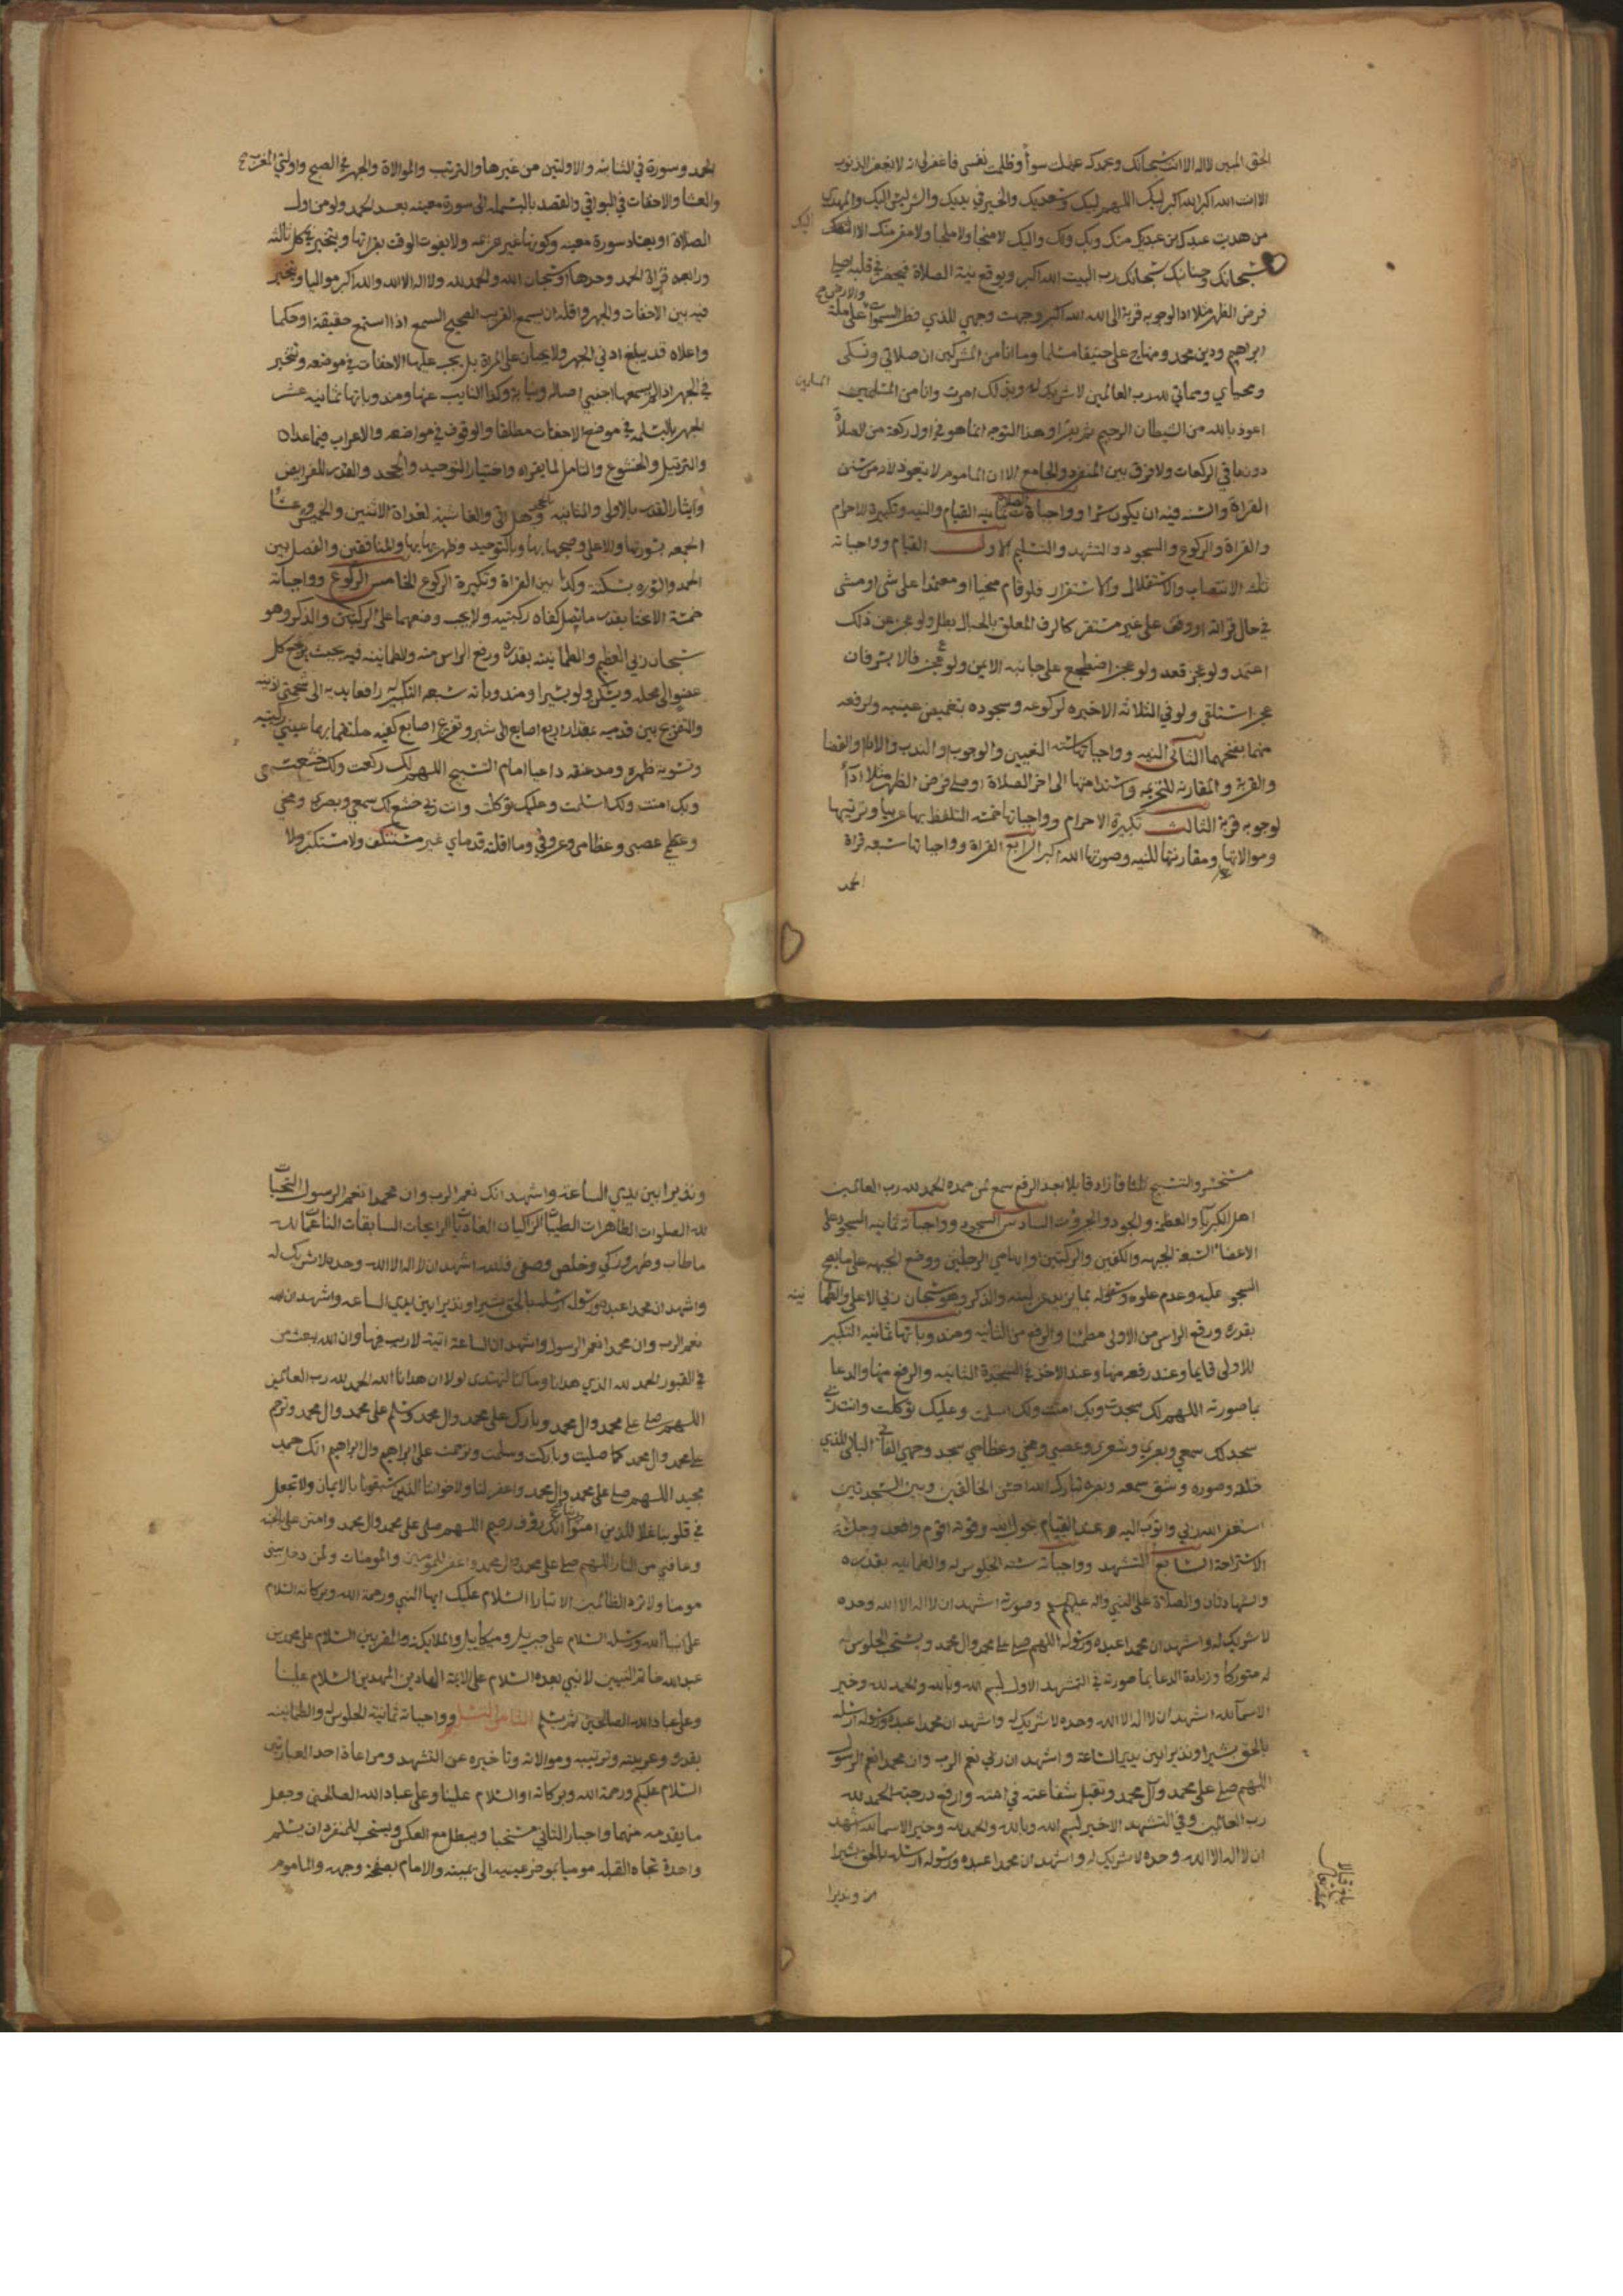 الحق المبين لا اله الا انت سبحانك وبحمدك عملت سوأ وظلمت نفسي فاغفر لي انه لا يغفر الذنوب
الا انت الله اكبر الله اكبر لبيك اللهم لبيك وسعديك والخير في يديك والشر ليس اليك والمهدي
من هديت عبدك ابن عبديك منك وبك ولك واليك لا منجا ولا ملجا ولا مفر منك الا اليك
سبحانك وحنانيك سبحانك رب البيت الله اكبر ويوقع نية الصلاة فيحضر في قلبه اصلي
فرض الظهر مثلا ادا لوجوبه قربة الى الله الله اكبر وجهت وجهي للذي فطر السموات والارض على ملة
ابراهيم ودين محمد ومنهاج علي حنيفا مسلما وما انا من المشركين ان صلاتي ونسكي
ومحياي ومماتي لله رب العالمين لا شريك له وبذلك امرت وانا من المسلمين
اعوذ بالله من الشيطان الرجيم ثم يقرا وهذا التوجه انما هو في اول ركعة من الصلاة
دون ما في الركعات ولا فرق بين المنفرد والجامع الا ان الماموم لا يتعوذ لانه من سنن
القراة والسنه فيه ان يكون سرا وواجبات الصلاة ثمانيه القيام والنيه وتكبيرة الاحرام
والقراة والركوع والسجود والتشهد والتسليم الاول القيام وواجباته
ثلثه الانتصاب والاستقلال والاستقرار فلو قام منحيا او معتمدا على شي او مشى
في حال قراته او وقف على غير مستقر كالرف المعلق بالحبال بطل ولو عجز عن ذلك
اعتمد ولو عجز قعد ولو عجز اضطجع على جانبه الايمن ولو عجز فالايسر فان
عجز استلقى ولو في الثلاثه الاخيره لركوعه وسجوده بتغميض عينيه ولرفعه
منهما بفتحهما الثاني النيه وواجباتها سته التعيين والوجوب او الندب والادا او القضا
والقربة والمقارنه للتحريمه واستدامتها الى اخر الصلاة اصلي فرض الظهر مثلا ادآ
لوجوبه قربة الثالث تكبيرة الاحرام وواجباتها خمته التلفظ بها عربيا وترتيبها
وموالاتها ومقارنتها للنيه وصورتها الله اكبر الرابع القراة وواجباتها سبعه قراة
الحمد
الحمد وسورة في الثنائيه والاولتين من غيرها والترتيب والموالاة والجهر في الصبح واولتي المغرب
والعشا والاخفات في البواقي والقصد بالبسمله الى سورة معينه بعد الحمد ولو من اول
الصلاة او يعتاد سورة معينه وكونها غير عزيمه ولا يفوت الوقت بقراتها ويتخير في كل ثالثه
ورابعه قراة الحمد وحدها او سبحان الله والحمد لله ولا اله الا الله والله اكبر مواليا ويتخير
فيه بين الاخفات والجهر واقله ان يسمع القريب الصحيح السمع اذا استمع حقيقة او حكما
واعلاه قد يبلغ ادنى الجهر ولا يجبان على المراة بل يجب عليها الاخفات في موضعه وتتخير
في الجهر اذا لم يسمعها اجنبي اصالة ونيابة وكذا النايب عنها ومندوباتها ثمانيه عشر
الجهر بالبسمله في موضع الاخفات مطلقا والوقوف في مواضعه والاعراب فيما عداه
والترتيل والخشوع والتامل لما يقراه واختيار التوحيد والجحد والقدر للفرايض
وايثار القدر بالاولى والثانيه بالجحد وهل اتى والغاشيه لغداة الاثنين والخميس وعشا
الجمعه بسورتها والاعلى وصبحها بها وبالتوحيد وظهريها بها والمنافقين والفصل بين
الحمد والسوره بسكتة وكذا بين القراة وتكبيرة الركوع الخامس الركوع وواجباته
خمسة الانحنا بقدر ما يصل كفاه ركبتيه ولا يجب وضعهما على الركبتين والذكر وهو
سبحان ربي العظيم والطمانينه بقدره ورفع الراس منه والطمانينه فيه بحيث يرجع كل
عضو الى محله ويسكن ولو يسيرا ومندوباته سبعه التكبير له رافعا يديه الى شحمتي اذنيه
والتفريج بين قدميه بمقدار اربع اصابع الى شبر وتفريج اصابع كفيه ملتقما بهما عيني ركبتيه
وتسوية ظهره ومد عنقه داعيا امام التسبيح اللهم لك ركعت ولك خشعت
وبك امنت ولك اسلمت وعليك توكلت وانت ربي خشع لك سمعي وبصري ومخي
وعظمي عصبي وعظامي وعروقي وما اقلته قدماي غير مستنكف ولا مستكبر ولا
مستحسر والتسبيح ثلثا فازاد قايلا بعد الرفع سمع لمن حمده الحمد لله رب العالمين
اهل الكبريا والعظمة والجود والجبروت السادس السجود وواجباته ثمانيه السجود على
الاعضا السبعة الجبهه والكفين والركبتين وابهامي الرجلين ووضع الجبهه على ما يصح
السجود عليه وعدم علوه وسفله بما يزيد عن لبنه والذكر وهو سبحان ربي الاعلى والطمانينه
بقدره ورفع الراس من الاولى مطمئنا والرفع من الثانيه ومندوباتها ثمانيه التكبير
للاولى قايما وعند رفعه منها وعند الاخذ في السجدة الثانيه والرفع منها والدعا
بما صورته اللهم لك سجدت وبك امنت ولك اسلمت وعليك توكلت وانت ربي
سجد لك سمعي وبصري وشعري وعصبي ومخي وعظامي سجد وجهي الفاني البالي للذي
خلقه وصوره وشق سمعه وبصره تبارك الله احسن الخالقين وبين السجدتين
استغفر الله ربي واتوب اليه وعند القيام بحول الله وقوته اقوم واقعد وجلسة
الاستراحة السابع التشهد وواجباته سته الجلوس له والطمانينه بقدره
والشهادتان والصلاة على النبي واله عليهم السلام وصورته اشهد ان لا اله الا الله وحده
لا شريك له واشهد ان محمدا عبده ورسوله اللهم صلي على محمد وال محمد ويستحب الجلوس
له متوركا وزيادة الدعا بما صورته في التشهد الاول بسم الله وبالله والحمد لله وخير
الاسما لله اشهد ان لا اله الا الله وحده لا شريك له واشهد ان محمدا عبده ورسوله ارسله
بالحق بشيرا ونذيرا بين يدي الساعة واشهد ان ربي نعم الرب وان محمدا نعم الرسول
اللهم صلي على محمد وآل محمد وتقبل شفاعته في امته وارفع درجته الحمد لله
رب العالمين وفي التشهد الاخير بسم الله وبالله والحمد لله وخير الاسما لله اشهد
ان لا اله الا الله وحده لا شريك له واشهد ان محمدا عبده ورسوله ارسله بالحق بشيرا
ونذيرا
ونذيرا بين يدي الساعة واشهد انك نعم الرب وان محمدا نعم الرسول التحيات
لله الصلوات الطاهرات الطيبات الزاكيات الغاديات الرايحات السابغات الناعمات لله
ما طاب وطهر وزكى وخلص وصفى فلله اشهد ان لا اله الا الله وحده لا شريك له
واشهد ان محمدا عبده ورسوله ارسله بالحق بشيرا ونذيرا بين يدي الساعه واشهد ان الله
نعم الرب وان محمدا نعم الرسول واشهد ان الساعة اتية لا ريب فيها وان الله يبعث من
في القبور الحمد لله الذي هدانا وما كنا لنهتدي لولا ان هدانا الله الحمد لله رب العالمين
اللهم صلي على محمد وال محمد وبارك على محمد وال محمد وسلم على محمد وال محمد وترحم
على محمد وال محمد كما صليت وباركت وسلمت وترحمت على ابراهيم وال ابراهيم انك حميد
مجيد اللهم صلي على محمد وال محمد واغفر لنا ولاخواننا الذين سبقونا بالايمان ولا تجعل
في قلوبنا غلا للذين امنوا ربنا انك رؤف رحيم اللهم صلي على محمد وال محمد وامنن علي بالجنه
وعافني من النار اللهم صلي على محمد وال محمد واغفر للمومنين والمومنات ولمن دخل بيتي
مومنا ولا تزد الظالمين الا تبارا السلام عليك ايها النبي ورحمة الله وبركاته السلام
على انبيا الله ورسله السلام على جبريل وميكاييل والملايكة المقربين السلام على محمد بن
عبد الله خاتم النبيين لا نبي بعده السلام على الايمة الهادين المهديين السلام علينا
وعلى عباد الله الصالحين ثم يسلم الثامن التسليم وواجباته ثمانية الجلوس له والطمانينه
بقدره وعربيته وترتيبه وموالاته وتاخيره عن التشهد ومراعاة احد العبارتين
السلام عليكم ورحمة الله وبركاته او السلام علينا وعلى عباد الله الصالحين وجعل
ما يقدمه منهما واجبا والثاني مستحبا ويبطل مع العكس ويستحب للمنفرد ان يسلم
واحدة تجاه القبله موميا بموخر عينيه الى يمينه والامام بصفحة وجهه والماموم